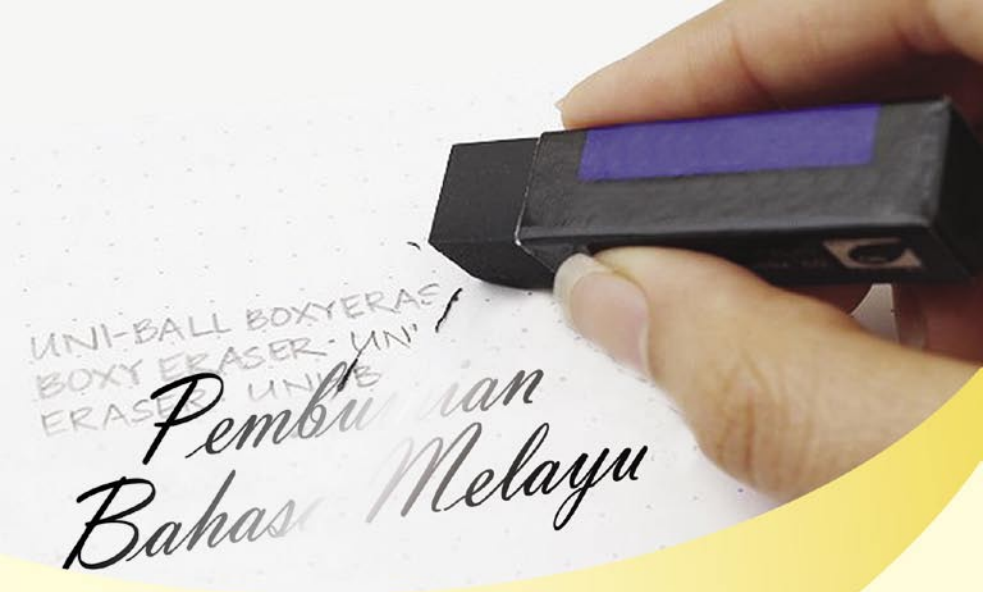 UNI-BALL BOXYERAS
BOXY ERASER - UN
ERASER UNI B
Pembu an
Bahas Melayu